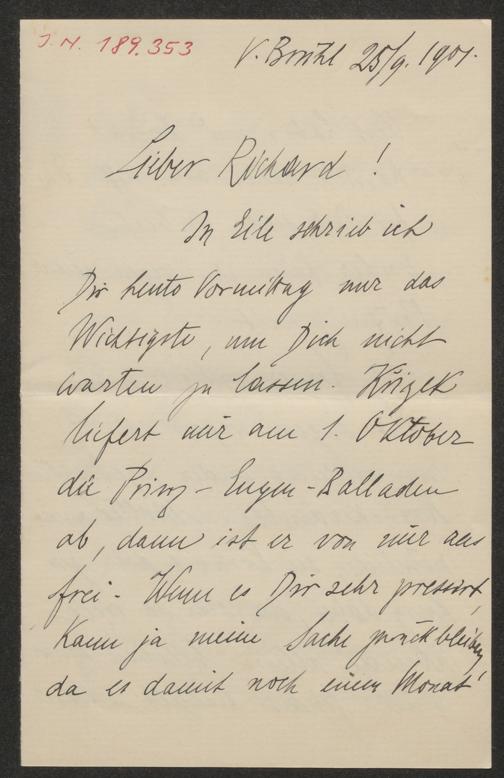 J. N. 189.353
V. Brühl 25/9. 1901.
Lieber Richard!
In Eile schrieb ich
Dir heute Vormittag nur das
Wichtigste, um Dich nicht
warten zu lassen. Křižek
liefert mir am 1. Oktober
die Prinz-Eugen-Balladen
ab, dann ist er von mir aus
frei. Wenn es Dir sehr pressirt,
kann ja meine Sache zurückbleiben,
da es damit noch einen Monat